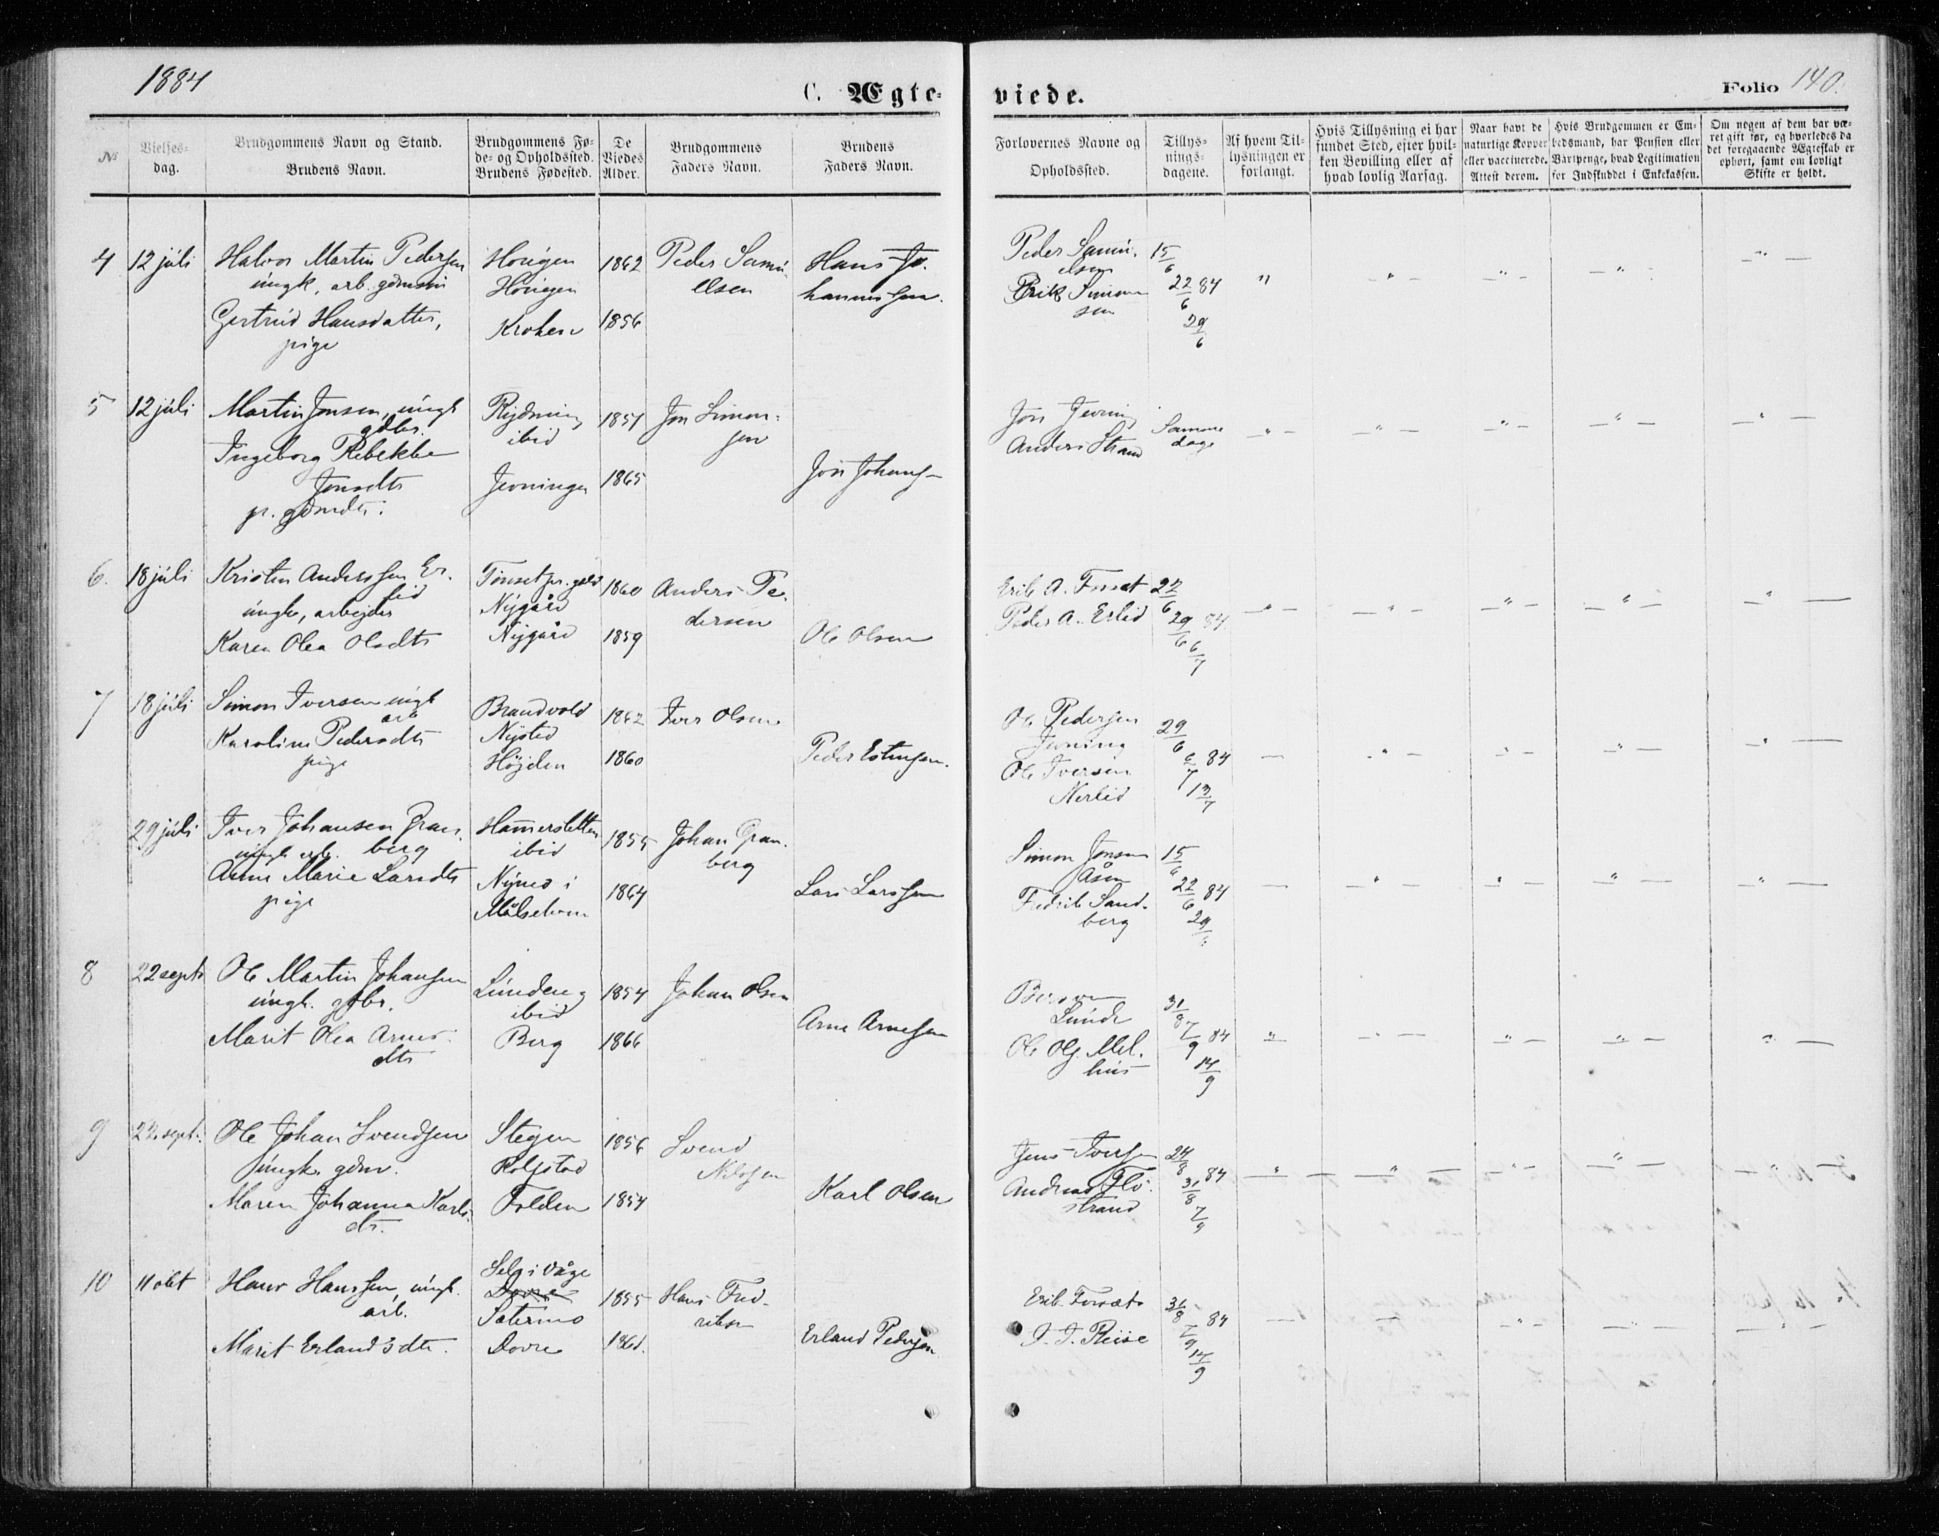 1884
C. Ægte-
viede.
Folio 140.
№
Vielses-
dag.
Brudgommens Navn og Stand.
Brudens Navn.
Brudgommens Fø-
de- og Opholdssted.
Brudens Fødested.
De
Viedes
Alder.
Brudgommens
Faders Navn.
Brudens
Faders Navn.
Forlovernes Navne og
Opholdssted.
Tillys-
nings-
dagene.
Af hvem Til-
lysningen er
forlangt.
Hvis Tillysning ei har
fundet Sted, efter hvil-
ken Bevilling eller af
hvad lovlig Aarsag.
Naar havt de
naturlige Kopper
eller vaccinerede.
Attest derom.
Hvis Brudgommen er Em-
bedsmand, har Pension eller
Vartpenge, hvad Legitimation
for Indskuddet i Enkekassen.
Om nogen af dem har væ-
ret gift før, og hvorledes da
det foregaaende Ægteskab er
ophørt, samt om lovligt
Skifte er holdt.
4 12 júli
Halvor Martin Pedersen
úngk, arb. gdmsøn
Gertrúd Hansdatter,
pige
1862
1856
Peder Samú
elsen
Hans Jo.
hannessen.
Peder Samú.
elsen
Erik Simon
sen
15/6
22/6 84
29/6
5 12 júli
Martin Jonsen, úngk
gdbr.
Ingeborg Rebekka
Jonsdtr
p. gdmdtr.
Rydning
ibid
Jevningen
1857
1865
Jon Simon-
sen
Jon Johans
Jon Jevning
Anders Strand
Samme
dage
6. 18 júli
Kristen Anderssen Er.
lid
úngk, arbejder
Karen Olea Olsdtr
Tønset pr. gjeld
Nýgård
Nýgård
1860
1859
Anders Pe.
dersen
Ole Olsen
Erik A. Fosset
Peder A. Erlid
22/6
29/6 84
6/7
7 18 júli
Simon Iversen úngk
arb
Karoline Pedersdtr
pige
Brandvold
Nýsted
Højden
1862
1860
Iver Olsen
Peder Estensen.
Ole Pedersen
Jevning
Ole Iversen
Nerlid
29/6
6/7 84
13/7
29 júli
Iver Johansen Gran
berg
úngk arb.
Anne Marie Larsdtr
pige
Hamersletten
ibid
Nýmo i
Målselven
1855
1864
Johan Gran.
berg
Lars Larssen
Simon Jonsen
Åsen
Fredrik Sand.
berg
15/6
22/6 84
29/6
8 22 septr
Ole Martin Johansen
úngk. gdbr.
Marit Olea Arnes
dtr
Lúndeng
ibid
Berg
1854
1866
Johan Olsen
Arne Arnesen
Lúnde
Ole Ols. Mel.
hús
31/8
7/9 84
14/9
9 22 sept.
Ole Johan Svendsen
úngk. gdm.
Maren Johanna Karls
dtr.
Stegen
Kolstad
Folden
1856
1854
Svend
Nilssen
Karl Olsen
Jens Iversen
Andreas Flø.
strand
24/8
31/8 84
7/9
10 11 okt
Hans Hanssen, úngk.
arb.
Marit Erlandsdtr.
Sel i Våge
Dovre
Sætermo
Dovre
1855
1860.
Hans Fred-
riksen
Erland Pedersen
Erik Fossæt
J. J. Reise
31/8
7/9 84
14/9